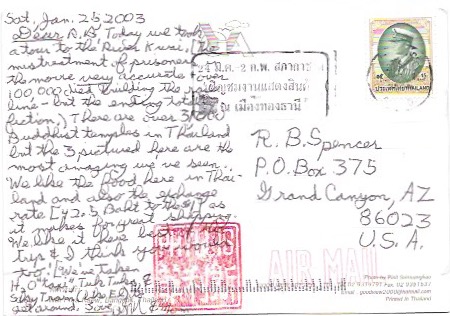 Sat, Jan. 25, 2003
Dear R.B, Today we took
a tour to the River Kwai, [The
mistreatment of prisoners
the movie very accurate + over
100 000 died building the rail
line - but the ending total
fiction.) There are over 31000
Buddhist temples in Thailand
but the 3 pictured here are the
most amazing we've seen.
We like the food here in Thai-
land and also the exchange
rate [42.5 Baht to the $] as
it makes for great shopping.
We like it here best of the
trip & I think you would
too. We've taken
Tuk Tuks &
Sky Train
get around.
ม.ค.-2 ก.พ. สภากาชาด
ชมงานแสดงสินค้า
ณ เมืองทองธานี
ประเทศไทย THAILAND
R. B. Spencer
P.O. Box 375
Grand Canyon, AZ
86023
U.S.A.
AIR MAIL
Photo by
Fax. 02
Printed in Thailand